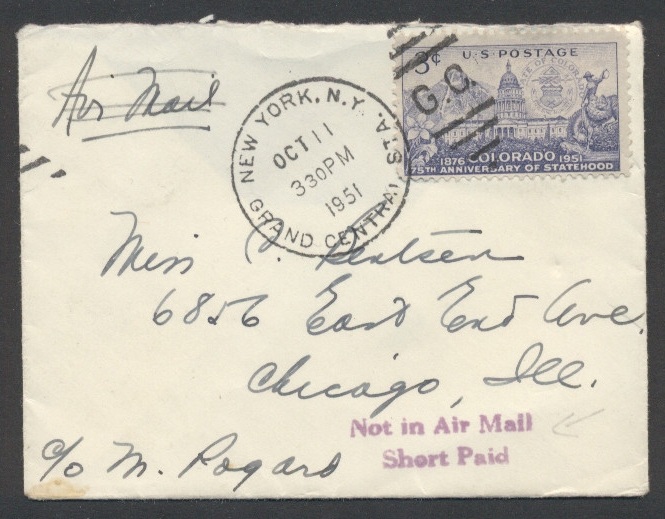 Air Mail
3¢ U.S. POSTAGE
STATE OF COLORADO
1876 COLORADO 1951
75TH ANNIVERSARY OF STATEHOOD
G.C.
NEW YORK, N.Y.
GRAND CENTRAL STA.
OCT 11
330PM
1951
Miss
6856 East End Ave.
Chicago, Ill.
Not in Air Mail
Short Paid
c/o M. Pogard